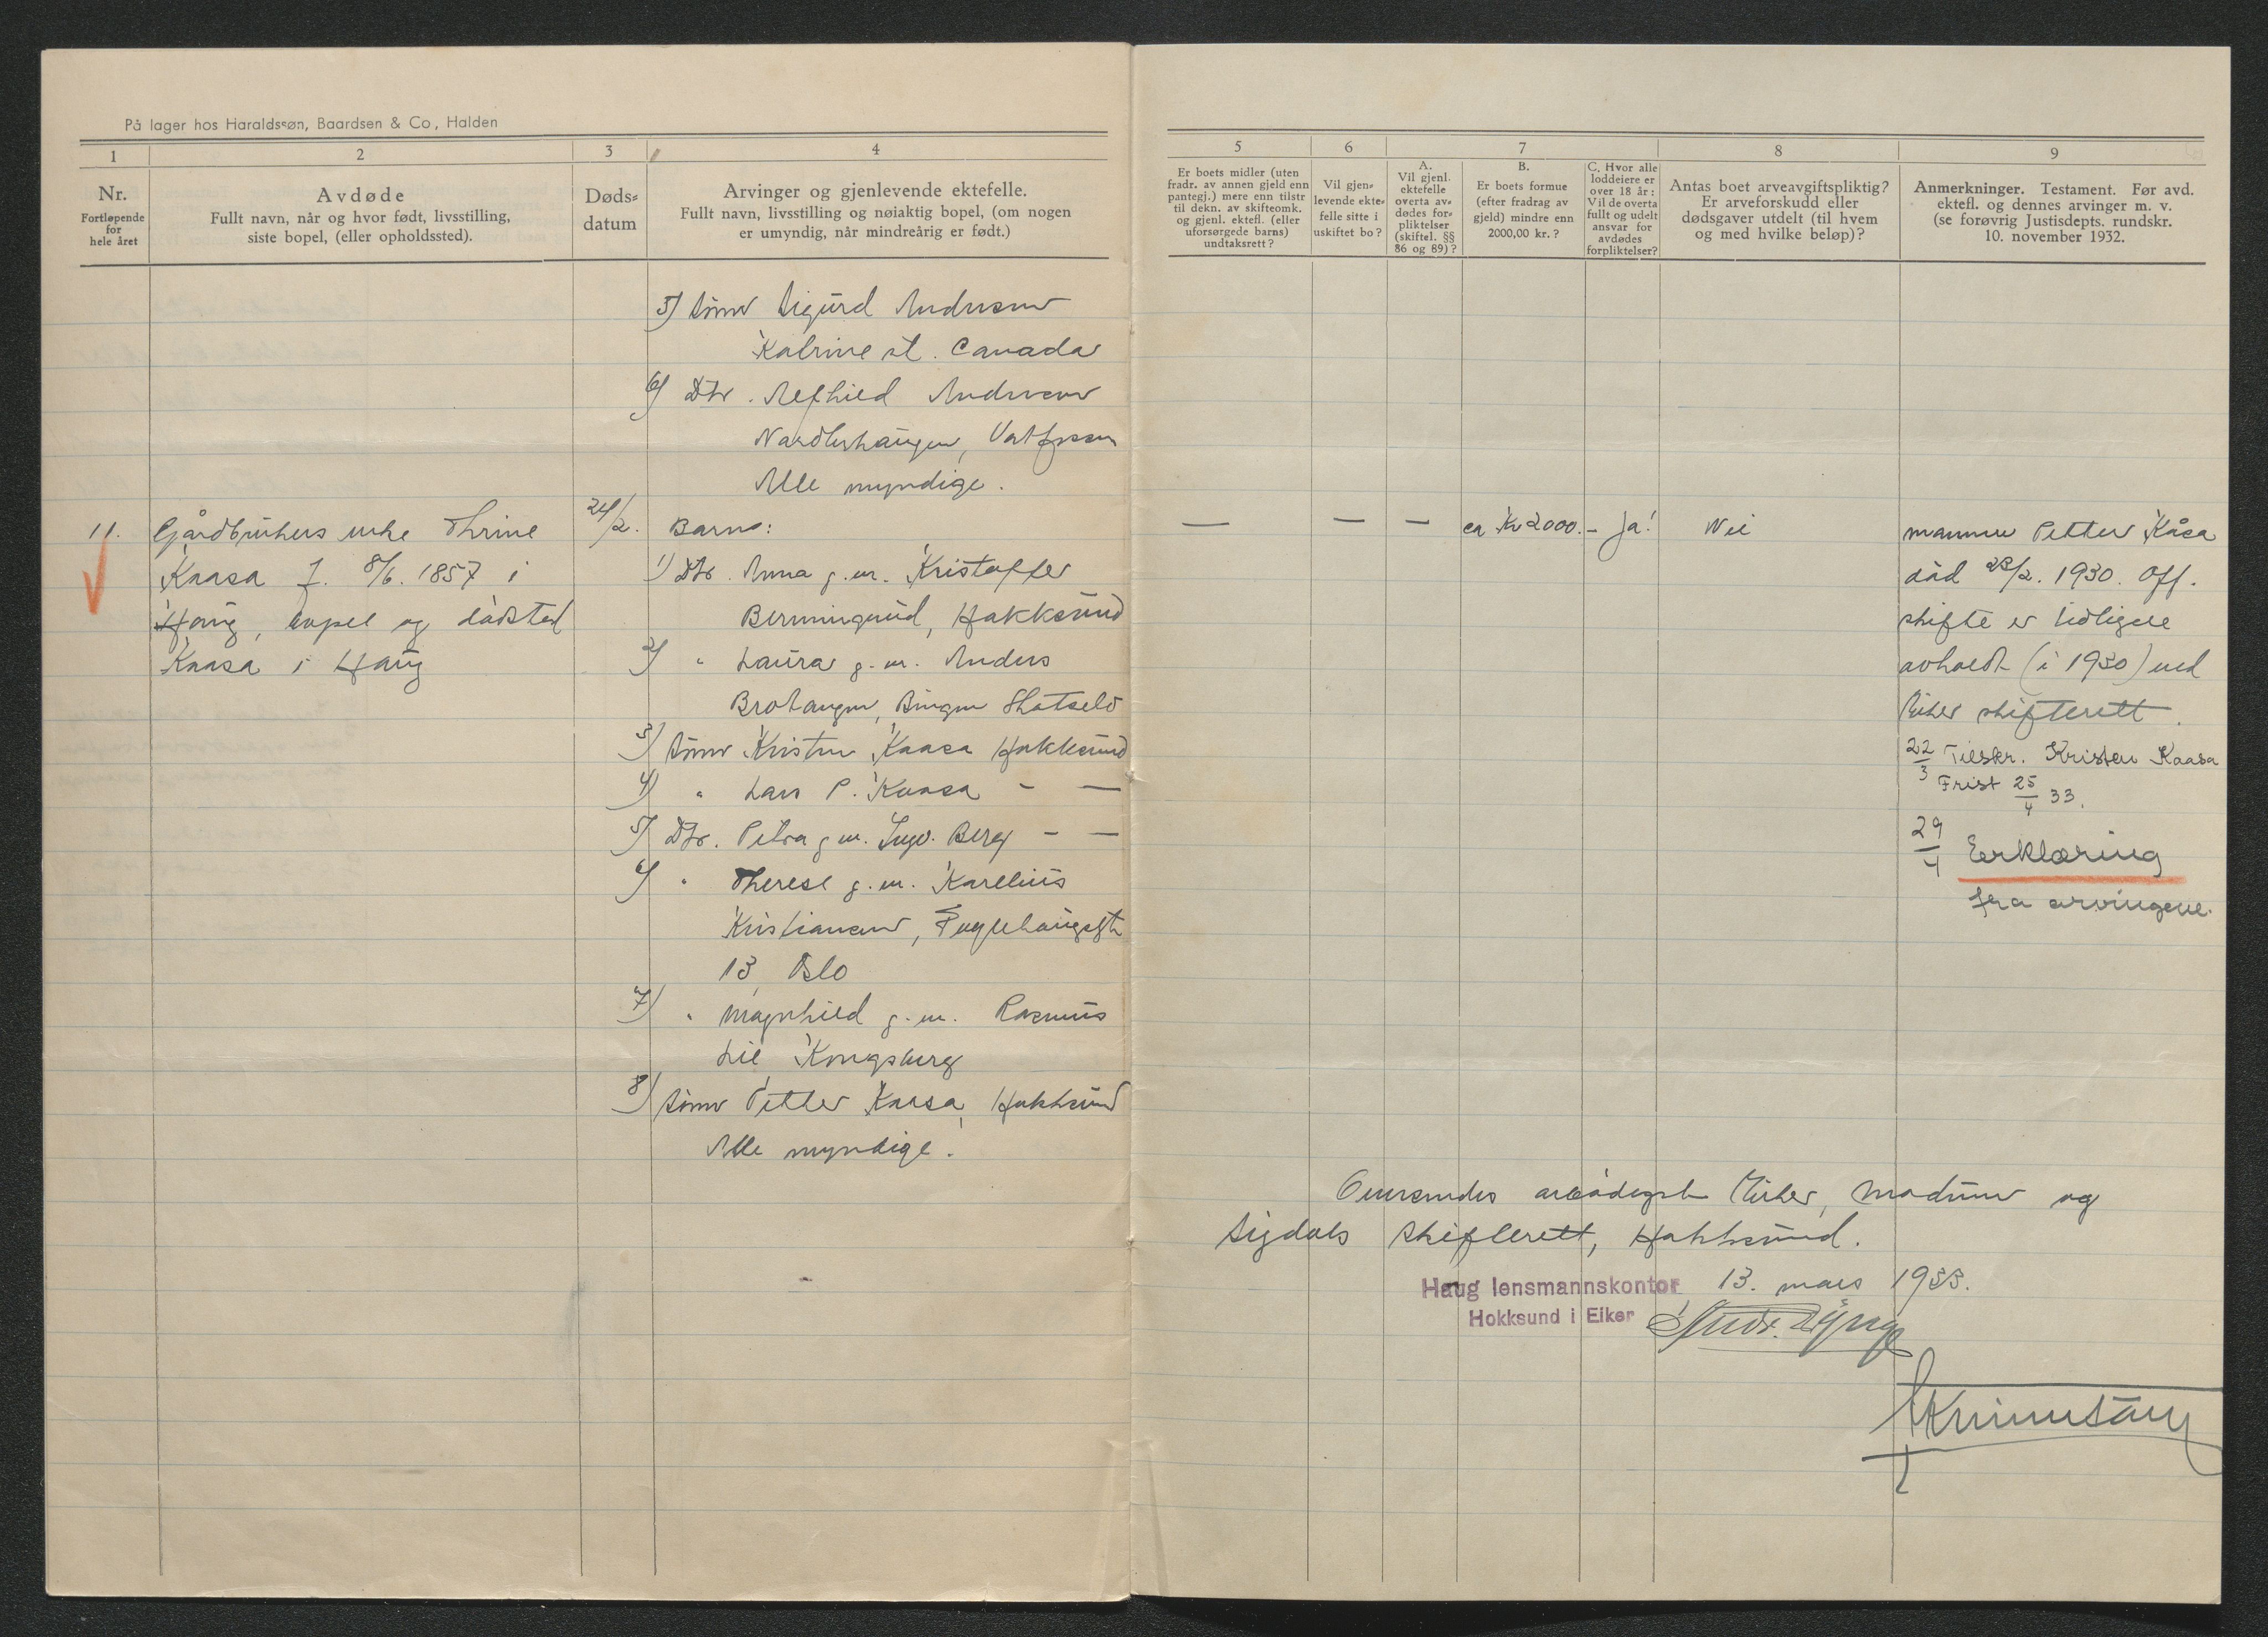 På lager hos Haraldssøn, Baardsen & Co, Halden
1
2
3
4
Nr.
Fortløpende
for
hele året
Avdøde
Fullt navn, når og hvor født, livsstilling,
siste bopel, (eller opholdssted).
Døds-
datum
Arvinger og gjenlevende ektefelle.
Fullt navn, livsstilling og nøiaktig bopel, (om nogen
er umyndig, når mindreårig er født.)
5) Sönn Sigurd Andersen
Katrine st. Canada
6) Dtr. Alfhild Andersen
Vestfossen
Alle myndige.
11.
Gårdbrukers enke Thrine
Kaasa f. 8/6. 1857 i
Haug, bopel og dödsted
Kaasa i Haug
24/2.
Barn:
1) Dtr. Anna g.m. Kristoffer
Hokksund
2) " Laura g.m. Anders
Brohaugen, Bingen Skotselv
3) Sönn Kristen Kaasa Hokksund
4) " Lars P. Kaasa - —
5) Dtr. Petra g.m. Ingv. Berg - —
6) " Therese g.m. Karelius
Kristiansen, Fuglehauggt
13, Oslo
7) " Magnhild g.m. Rasmus
Lie Kongsberg
8) Sönn Petter Kaasa, Hokksund
Alle myndige.
5
6
7
8
9
Er boets midler (uten
fradr. av annen gjeld enn
pantegj.) mere enn tilstr
til dekn. av skifteomk.
og gjenl. ektefl. (eller
uforsørgede barns)
undtaksrett?
Vil gjen-
levende ekte-
felle sitte i
uskiftet bo?
A.
Vil gjenl.
ektefelle
overta av-
dødes for-
pliktelser
(skiftel. §§
86 og 89)?
B.
Er boets formue
(efter fradrag av
gjeld) mindre enn
2000,00 kr.?
C. Hvor alle
loddeiere er
over 18 år:
Vil de overta
fullt og udelt
ansvar for
avdødes
forpliktelser?
Antas boet arveavgiftspliktig?
Er arveforskudd eller
dødsgaver utdelt (til hvem
og med hvilke beløp)?
Anmerkninger. Testament. Før avd.
ektefl. og dennes arvinger m. v.
(se forøvrig Justisdepts. rundskr.
10. november 1932.
— — — ca Kr 2000.- Ja! Nei
mannen Petter Kåsa
död 28/2. 1930. Off.
skifte er tidligere
avholdt (i 1930) ved
Eiker skifterett.
22/3 Tilskr. Kristen Kaasa
Frist 25/4 33.
29/4 Erklæring
fra arvingene.
Oversendes ærbödigst Eiker, Modum og
Sigdals Skifterett, Hokksund.
Haug lensmannskontor 13. mars 1933.
Hokksund i Eiker